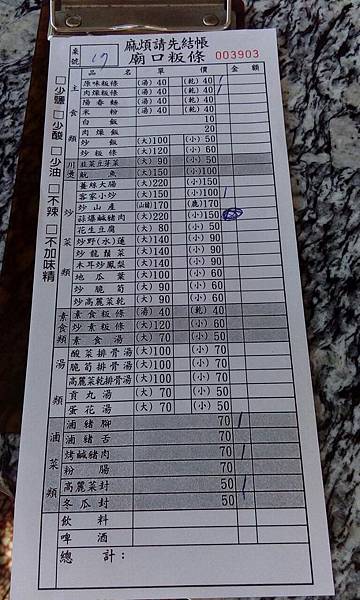 麻煩請先結帳
桌號 17 廟口粄條 003903
品名 單價 金額
主食類
原味粄條 (湯) 40 (乾) 40
肉燥粄條 (湯) 40 (乾) 40
陽春麵 (湯) 40 (乾) 40
米粉 (湯) 40 (乾) 40
白飯 10
肉燥飯 20
炒飯 (大) 100 (小) 50
炒粄條 (大) 120 (小) 60
川燙
韭菜豆芽菜 (大) 90 (小) 50
魷魚 (大) 150 (小) 100
炒菜類
薑絲大腸 (大) 220 (小) 150
客家小炒 (大) 150 (小) 100
炒山產 (山豬) 170 (鹿) 170
蒜爆鹹豬肉 (大) 220 (小) 150
花生豆腐 (大) 80 (小) 50
炒野(水)蓮 (大) 140 (小) 90
炒龍鬚菜 (大) 140 (小) 90
木耳炒鳳梨 (大) 140 (小) 90
地瓜葉 (大) 100 (小) 60
炒脆筍 (大) 90 (小) 50
炒高麗菜乾 (大) 90 (小) 50
素食類
素食粄條 (湯) 40 (乾) 40
炒素粄條 (大) 120 (小) 60
素食湯 (大) 70 (小) 50
湯類
酸菜排骨湯 (大) 100 (小) 70
脆筍排骨湯 (大) 100 (小) 70
高麗菜乾排骨湯 (大) 100 (小) 70
貢丸湯 (大) 70 (小) 50
蛋花湯 (大) 70 (小) 50
滷菜類
滷豬腳 70
滷豬舌 70
烤鹹豬肉 70
粉腸 70
高麗菜封 50
冬瓜封 50
飲料
啤酒
總計:
□少鹽 □少酸 □少油 □不辣 □不加味精